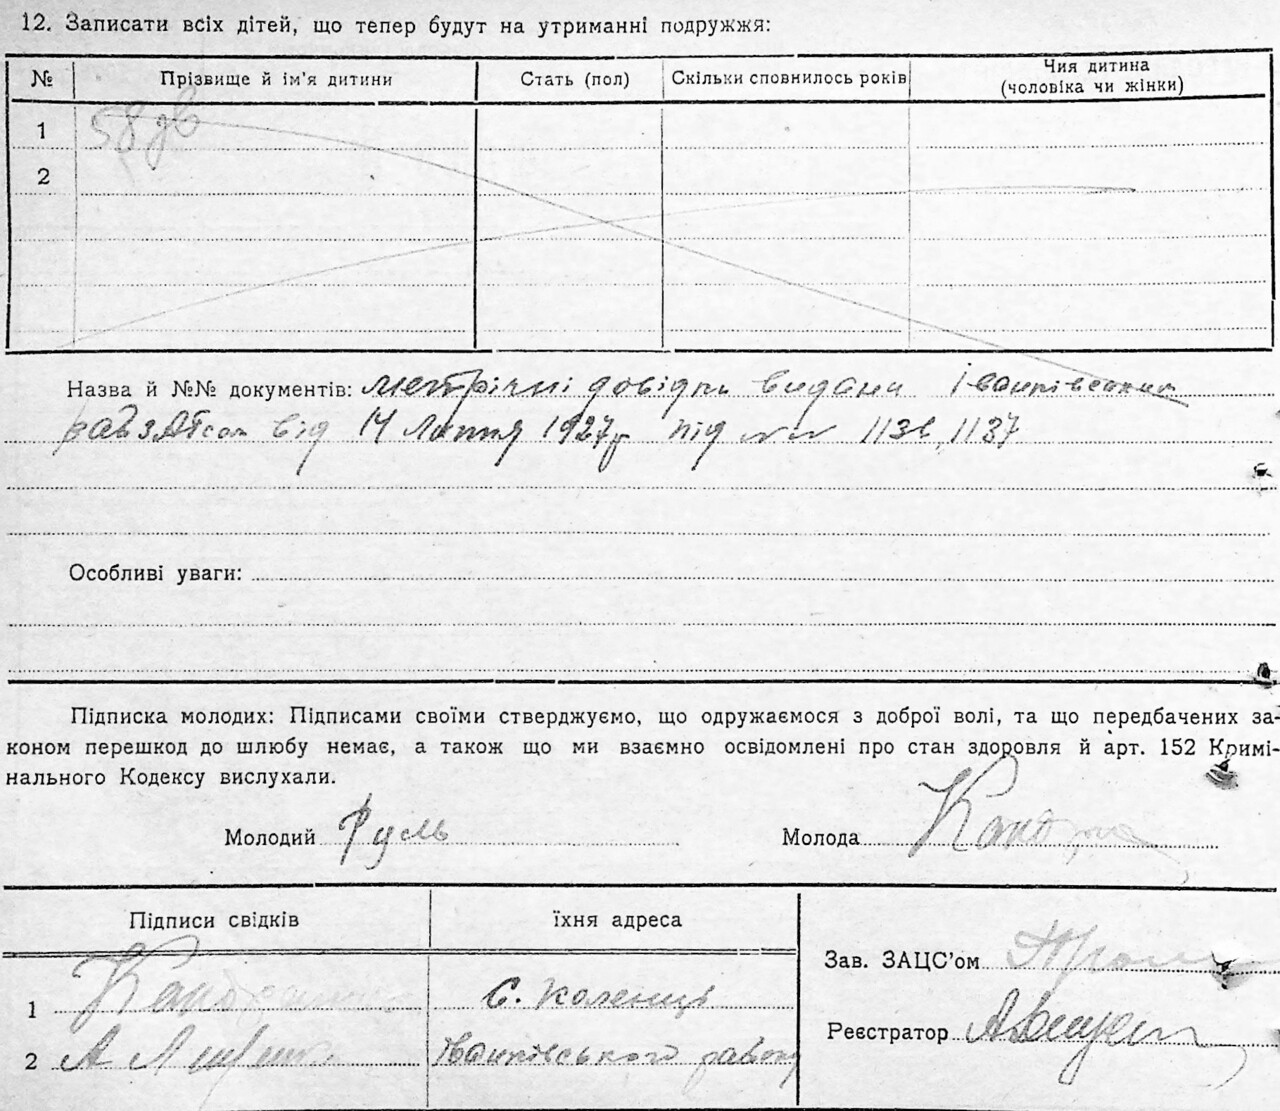 12. Записати всіх дітей, що тепер будут на утриманні подружжя:
№ Прізвище й ім'я дитини Стать (пол) Скільки сповнилось років Чия дитина (чоловіка чи жінки)
1 58
2
Назва й №№ документів: метрічні довідки видани Іванківським
від 14 Липня 1927р під №№ 1136, 1137
Особливі уваги:
Підписка молодих: Підписами своїми стверджуємо, що одружаємося з доброї волі, та що передбачених за-
коном перешкод до шлюбу немає, а також що ми взаємно освідомлені про стан здоровля й арт. 152 Кримі-
нального Кодексу вислухали.
Молодий Русль Молода
Підписи свідків їхня адреса
Зав. ЗАЦС'ом
1 с. Коленці
Реєстратор
2 Іванківського району